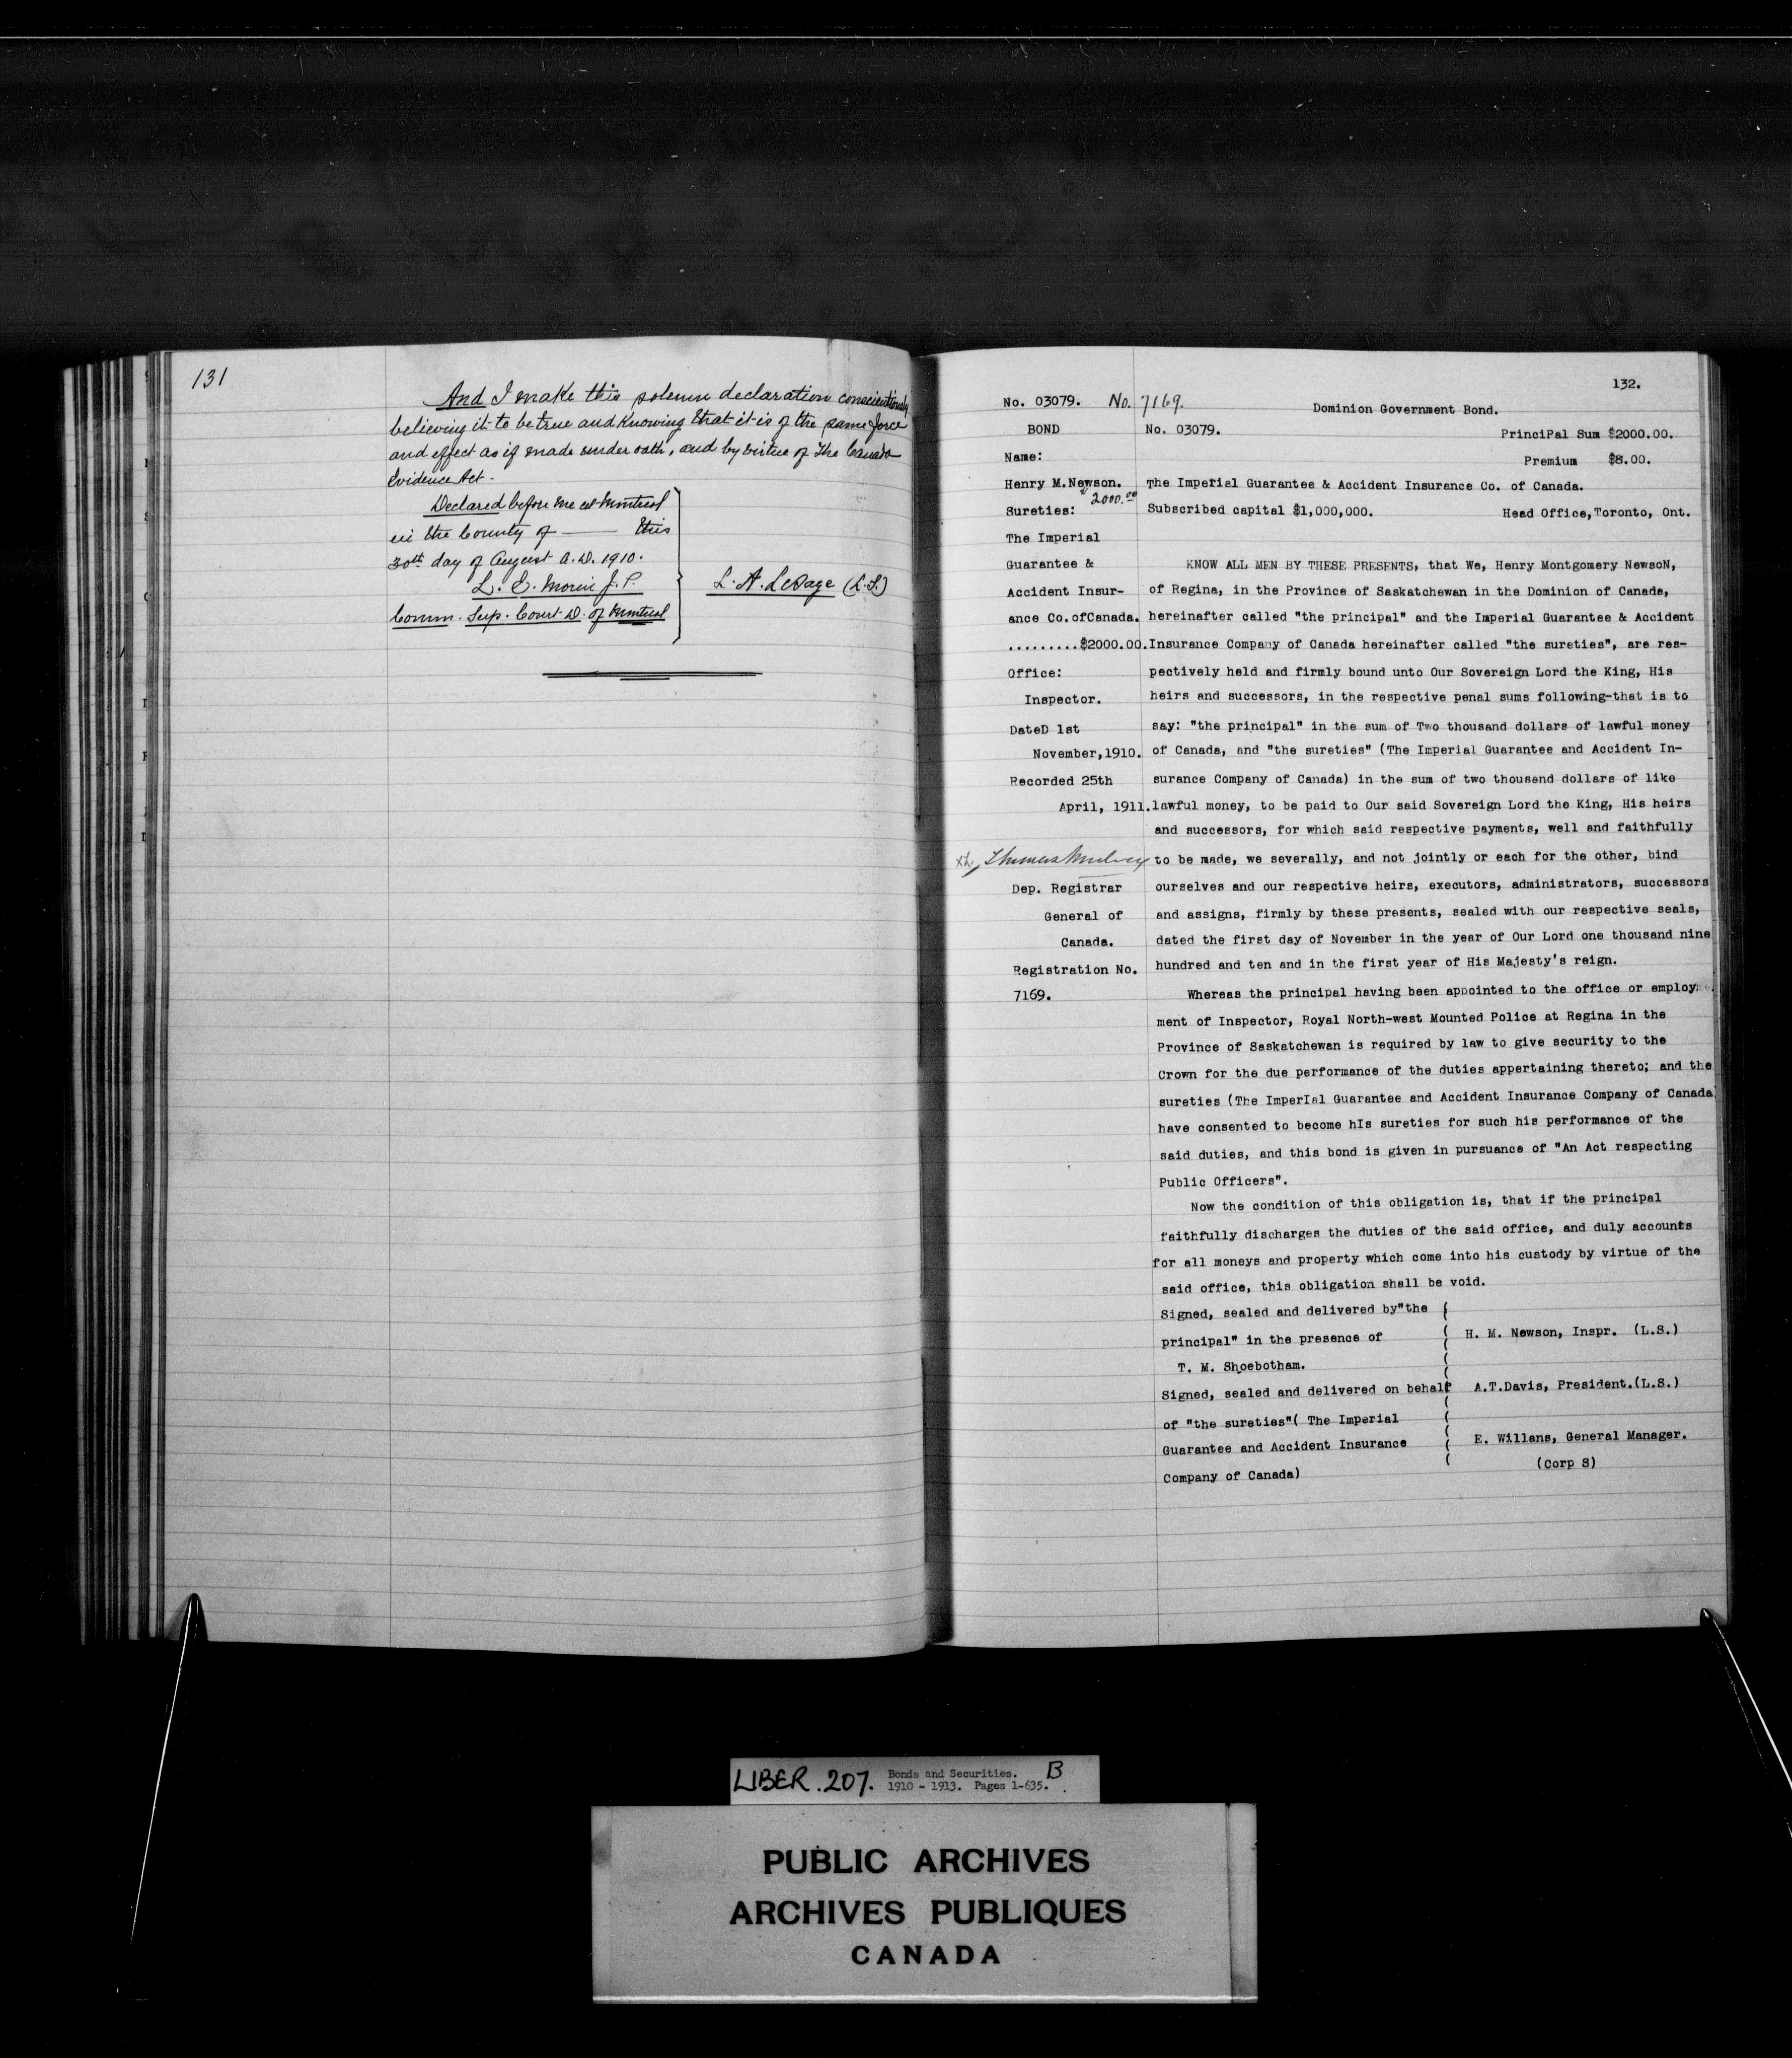 131
And I make this solemn declaration conscientiously
believing it to be true and knowing that it is of the same force
and effect as if made under oath, and by virtue of The Canada
Evidence Act.
Declared before me at Montreal
in the County of —— this
30th day of August A.D. 1910.
L. E. Morin J.P.
Comm. Sup. Court D. of Montreal
L. A. LeSage (L.S.)
132.
No. 03079. No. 7169.
BOND
Name:
Henry M.Newson.
2000.00
Sureties:
The Imperial
Guarantee &
Accident Insur-
ance Co.ofCanada.
.........$2000.00.
Office:
Inspector.
DateD 1st
November,1910.
Recorded 25th
April, 1911.
Thomas Mulvey
Dep. Registrar
General of
Canada.
Registration No.
7169.
Dominion Government Bond.
No. 03079.
PrinciPal Sum $2000.00.
Premium $8.00.
The Imperial Guarantee & Accident Insurance Co. of Canada.
Subscribed capital $1,000,000. Head Office,Toronto, Ont.
KNOW ALL MEN BY THESE PRESENTS, that We, Henry Montgomery NewsoN,
of Regina, in the Province of Saskatchewan in the Dominion of Canada,
hereinafter called "the principal" and the Imperial Guarantee & Accident
Insurance Company of Canada hereinafter called "the sureties", are res-
pectively held and firmly bound unto Our Sovereign Lord the King, His
heirs and successors, in the respective penal sums following-that is to
say: "the principal" in the sum of Two thousand dollars of lawful money
of Canada, and "the sureties" (The Imperial Guarantee and Accident In-
surance Company of Canada) in the sum of two thousand dollars of like
lawful money, to be paid to Our said Sovereign Lord the King, His heirs
and successors, for which said respective payments, well and faithfully
to be made, we severally, and not jointly or each for the other, bind
ourselves and our respective heirs, executors, administrators, successors
and assigns, firmly by these presents, sealed with our respective seals,
dated the first day of November in the year of Our Lord one thousand nine
hundred and ten and in the first year of His Majesty's reign.
Whereas the principal having been appointed to the office or employ
ment of Inspector, Royal North-west Mounted Police at Regina in the
Province of Saskatchewan is required by law to give security to the
Crown for the due performance of the duties appertaining thereto; and the
sureties (The ImperIal Guarantee and Accident Insurance Company of Canada)
have consented to become hIs sureties for such his performance of the
said duties, and this bond is given in pursuance of "An Act respecting
Public Officers".
Now the condition of this obligation is, that if the principal
faithfully discharges the duties of the said office, and duly accounts
for all moneys and property which come into his custody by virtue of the
said office, this obligation shall be void.
Signed, sealed and delivered by"the
principal" in the presence of
T. M. Shoebotham.
H. M. Newson, Inspr. (L.S.)
Signed, sealed and delivered on behalf
of "the sureties"( The Imperial
Guarantee and Accident Insurance
Company of Canada)
A.T.Davis, President.(L.S.)
E. Willans, General Manager.
(Corp S)
LIBER.207. Bonds and Securities. B
1910 - 1913. Pages 1-635.
PUBLIC ARCHIVES
ARCHIVES PUBLIQUES
CANADA